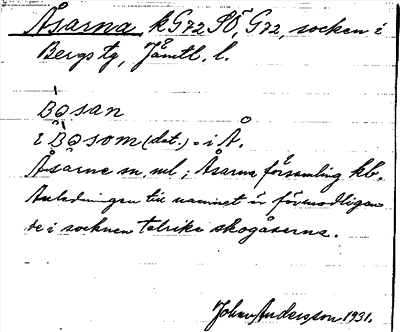 Åsarna kG72SÖ, G72, socken i
Bergs tg, Jämtl. l.
Bosan
i Bosom (dat.) - i Å.
Åsarne sn, ml; Åsarna församling kb.
Anledningen till namnet är förmodligen
de i socknen talrika skogåserna.
Johan Andersson 1931.